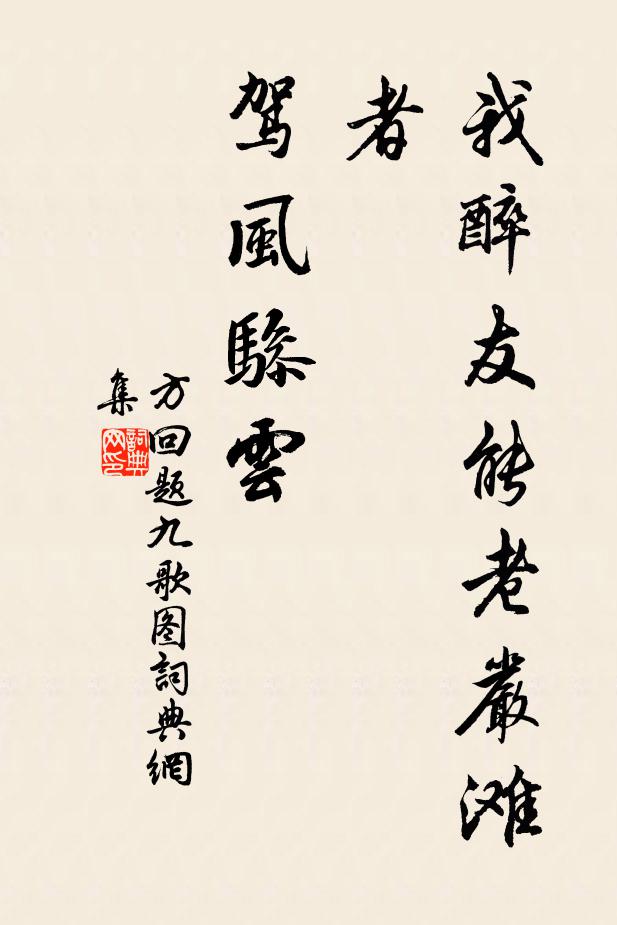 我醉友能老嚴滩
者
駕風驂雲
方回题九歌图詞典網
集
詞典网印